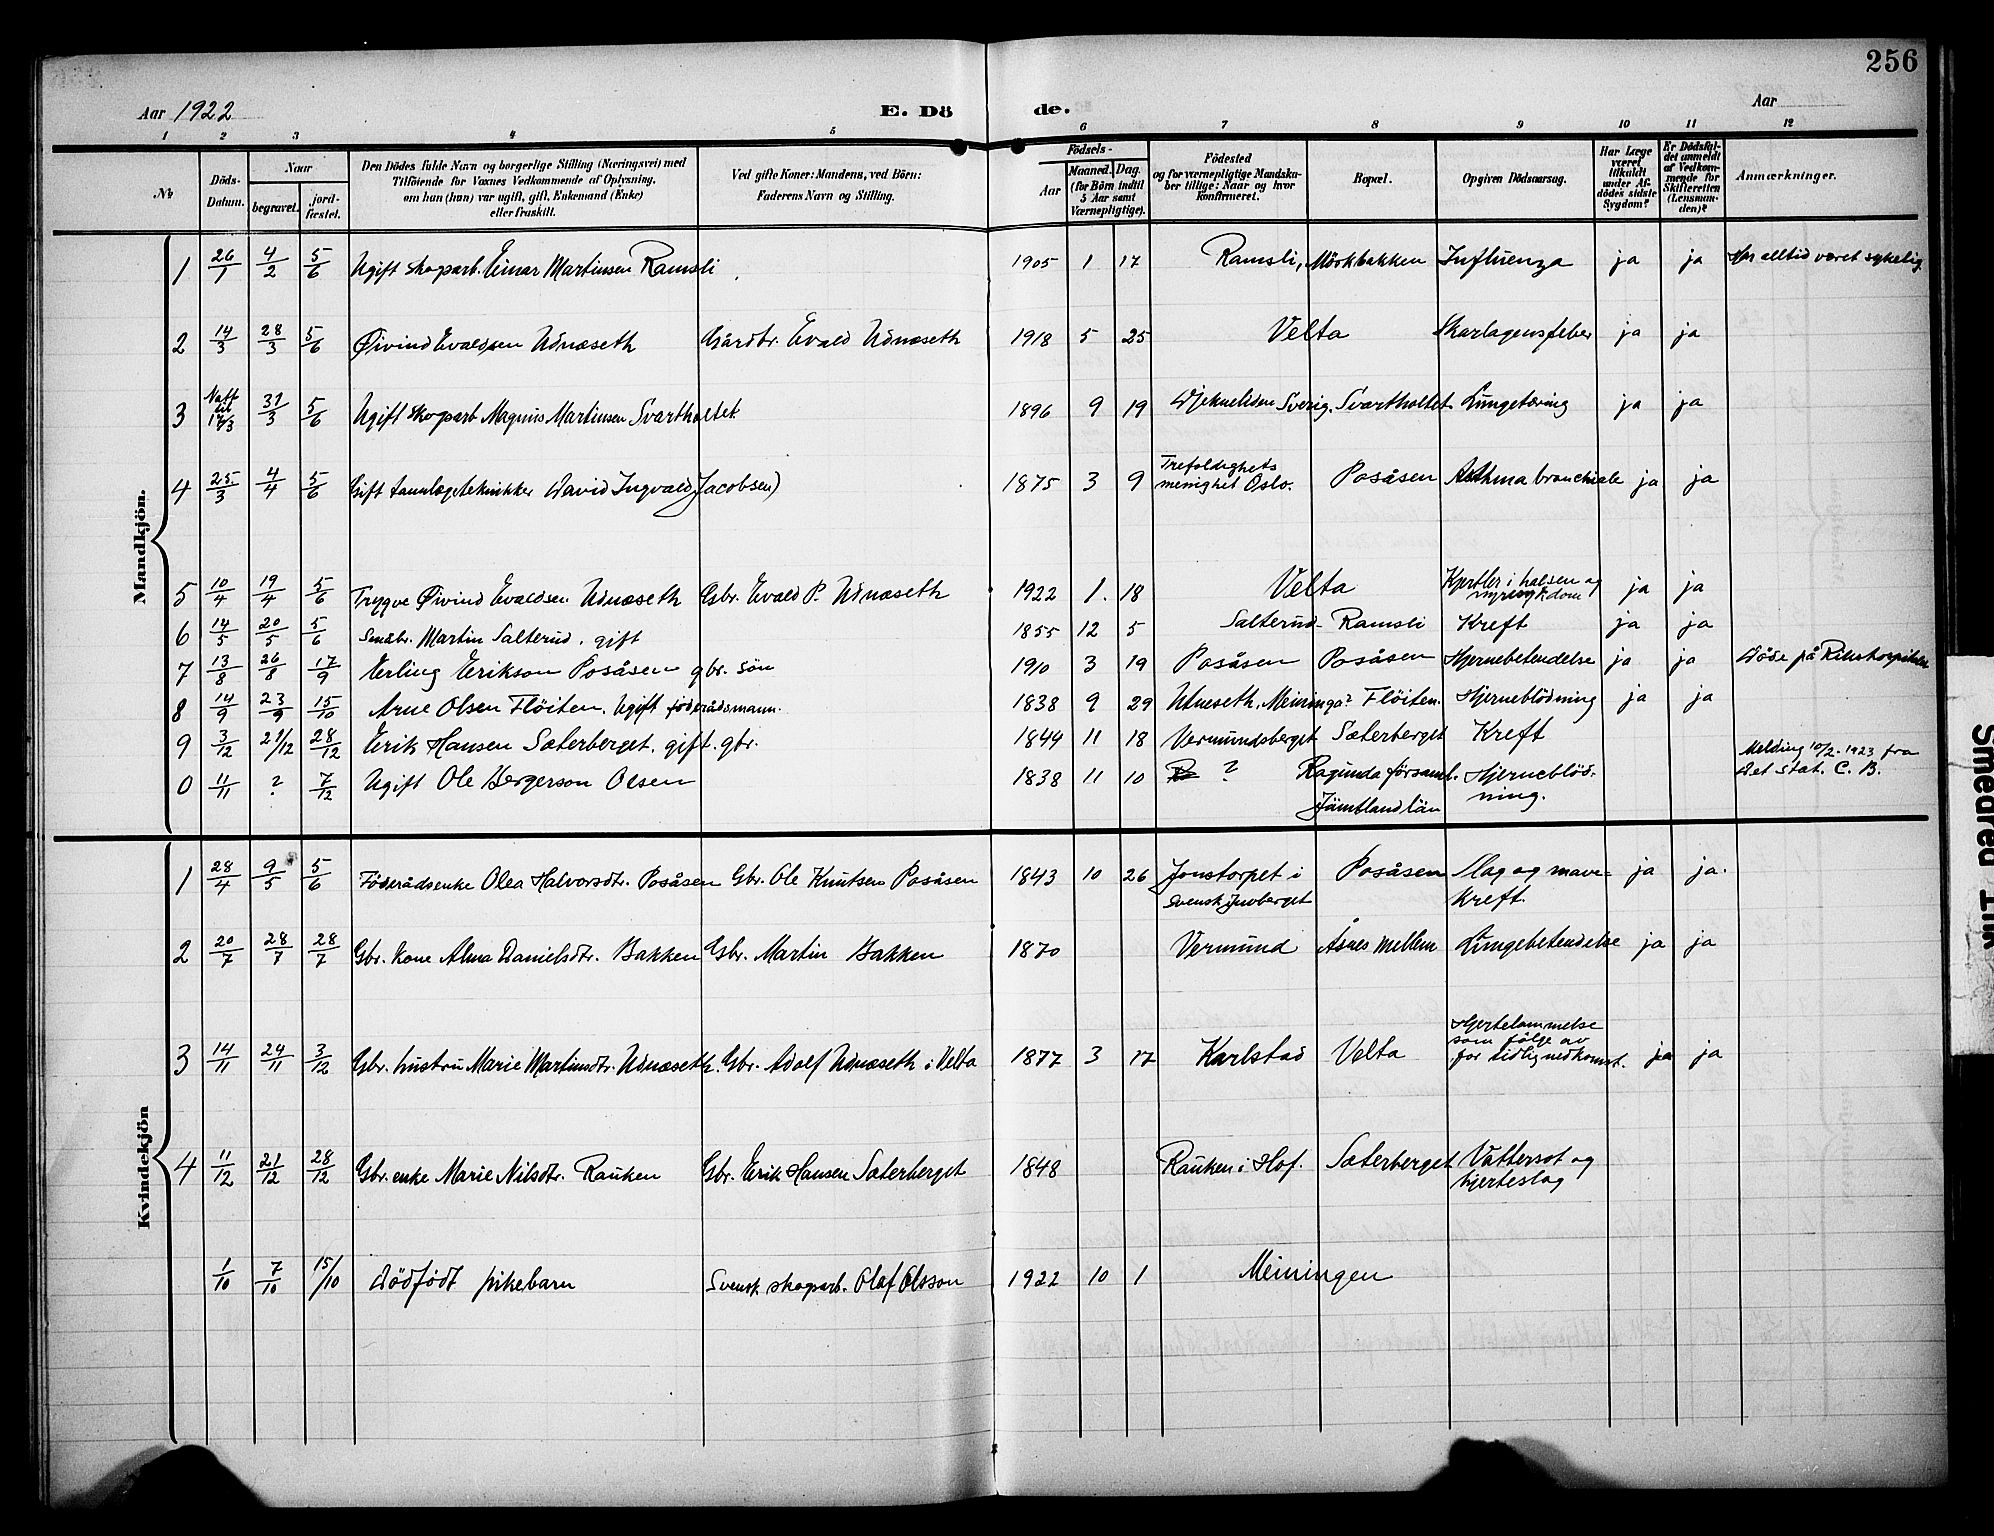 256
Aar 1922 E. Dö de. Aar
1 2 3 4 5 6 7 8 9 10 11 12
No
Döds-Datum.
Naar
begravet.
jord-fæstet.
Den Dödes fulde Navn og borgerlige Stilling (Næringsvei) med
Tilföiende for Voxnes Vedkommende af Oplysning,
om han (hun) var ugift, gift, Enkemand (Enke)
eller fraskilt.
Ved gifte Koner: Mandens, ved Börn:
Faderens Navn og Stilling.
Födsels-
Aar
Maaned. Dag.
(for Börn indtil
5 Aar samt
Værnepligtige).
Födested
og for værnepligtige Mandska-
ber tillige: Naar og hvor
konfirmeret.
Bopæl.
Opgiven Dödsaarsag.
Har Læge
været
tilkaldt
under Af-
dödes sidste
Sygdom?
Er Dödsfal-
det anmeldt
af Vedkom-
mende for
Skifteretten
(Lensman-
den)?
Anmærkninger.
Mandkjön.
1 26/1 4/2 5/6 Ugift skogarb. Einar Martinsen Ramsli 1905 1 17 Ramsli, Mörkbakken Influenza ja ja Har alltid været sykelig
2 14/3 28/3 5/6 Øivind Evaldsen Udnæseth Gårdbr. Evald Udnæseth 1918 5 25 Velta Skarlagensfeber ja ja
3 Natt til 17/3 31/3 5/6 Ugift skogarb Magnus Martinsen Svartholtet 1896 9 19 Sverig. Svartholtet Lungetæring ja ja
4 25/3 4/4 5/6 Gift tannlægetekniker David Ingvald Jacobsen) 1875 3 9 Trefoldighets
menighet Oslo. Posåsen Asthma bronchiale ja ja
5 10/4 19/4 5/6 Trygve Øivind Evaldsen Udnæseth Gbr. Evald P. Udnæseth 1922 1. 18 Velta Kjertler i halsen og
nyresykdom ja ja
6 14/5 20/5 5/6 Småbr. Martin Salterud. gift 1855 12 5 Salterud Ramsli Kreft ja ja
7 13/8 26/8 17/9 Erling Erikson Posåsen gbr. sön 1910 3 19 Posåsen Posåsen Hjernebetendelse ja ja Döde på Rikshospitalet
8 14/9 23/9 15/10 Arne Olsen Flöiten. Ugift föderådsmann. 1838 9 29 Utneseth, Meininga? Flöiten. Hjerneblödning ja ja
9 3/12 21/12 28/12 Erik Hansen Sæterberget. gift. gbr. 1844 11 18 Vermundsberget Sæterberget Kreft
0 11/11 ? 7/12 Ugift Ole Bergerson Olsen 1838 11 10 ? Ragunda församl.
Jämtland län Hjerneblöd-
ning. Melding 10/2-1923 fra
Det stat. C. B.
Kvindekjön
1 28/4 9/5 5/6 Föderådsenke Olea Halvorsdtr. Posåsen Gbr. Ole Knutsen Posåsen 1843 10 26 Jonstorpet i
svensk Juvberget Posåsen Slag og mave-
kreft. ja ja.
2 20/7 28/7 28/7 Gbr. kone Alma Danielsdtr. Bakken Gbr. Martin Bakken 1870 Vermund Åsnes mellem Lungebetendelse ja ja
3 14/11 24/11 3/12 Gbr. hustru Marie Martinsdtr. Udnæseth. Gbr. Adolf Udnæseth i Velta 1877 3 17 Karlstad Velta Hjertelammelse
som fölge av
for tidlig nedkomst. ja ja
4 11/12 21/12 28/12 Gbr. enke Marie Nilsdtr. Rauken Gbr. Erik Hansen Sæterberget 1848 Rauken i Hof. Sæterberget Vattersot og
hjerteslag
1/10 7/10 15/10 Dödfödt pikebarn Svensk skogarb. Olaf Olsson 1922 10 1 Meiningen
Smedred